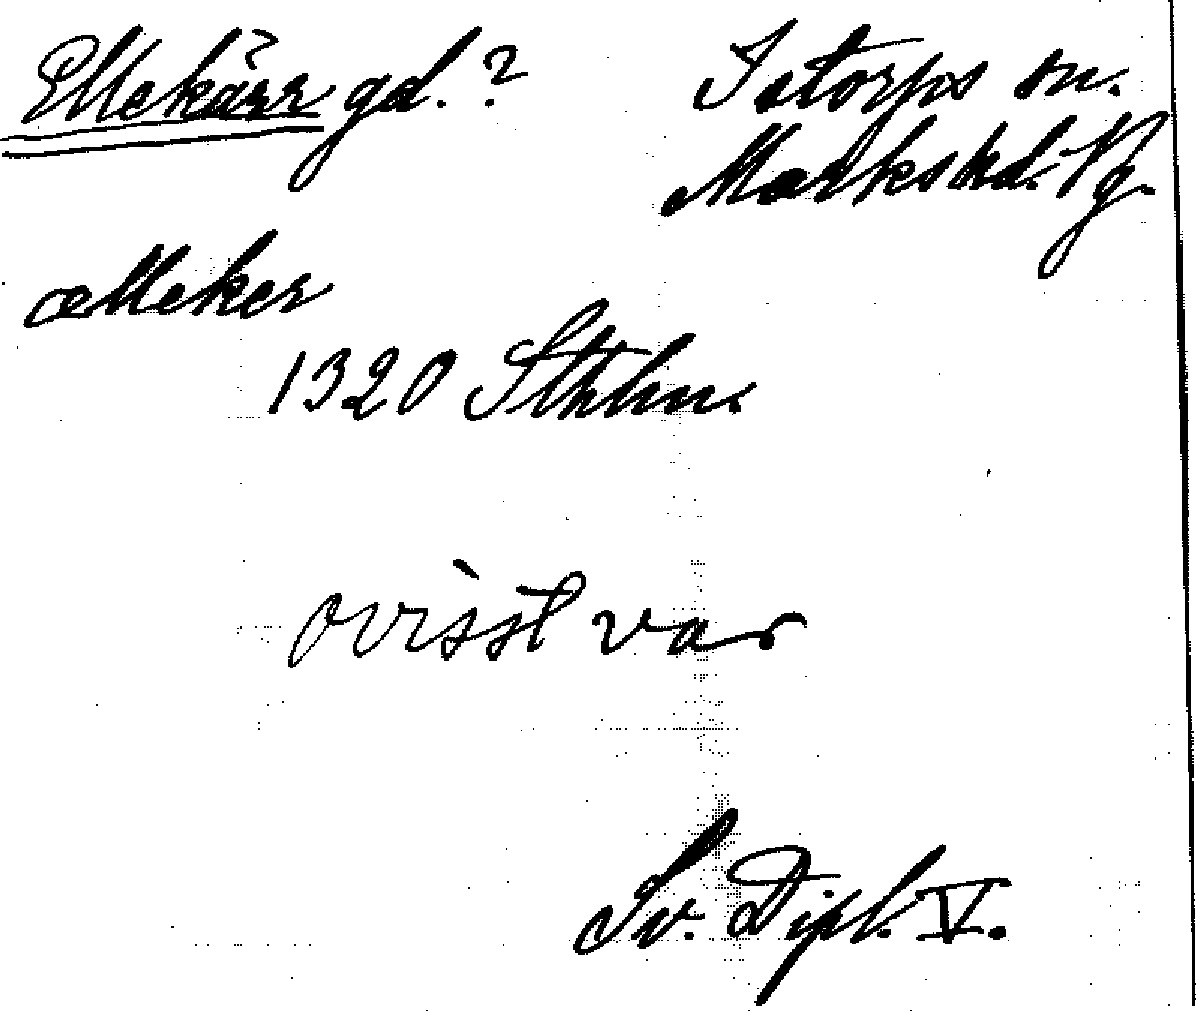 Ellekärr gd.? Istorps sn.
Marks hd. Vg.
ælleker
1320 Sthlm.
ovisst var
Sv. Dipl. V.